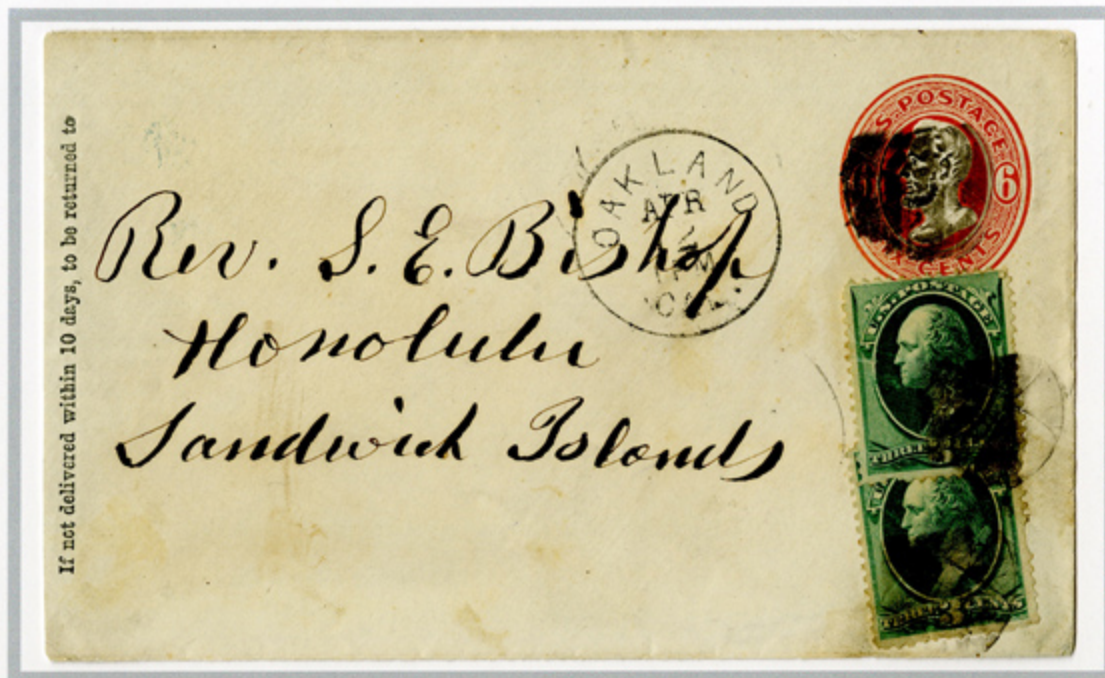 If not delivered within 10 days, to be returned to
Rev. S. E. Bishop
Honolulu
Sandwich Islands
OAKLAND
APR
CAL.
U.S. POSTAGE
6
SIX CENTS
U.S. POSTAGE
THREE CENTS
3
THREE CENTS
3